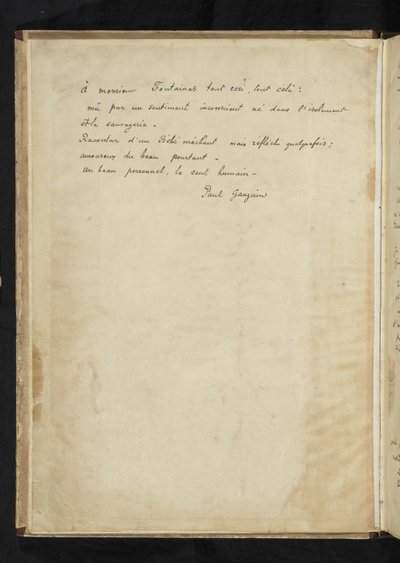 à monsieur Fontainas tout ceci, tout celà :
mû par un sentiment inconscient né dans l'isolement
et la sauvagerie -
Racontar d'un Bébé méchant mais réfléchi quelquefois ;
amoureux du beau pourtant -
un beau personnel, le seul humain -
Paul Gauguin